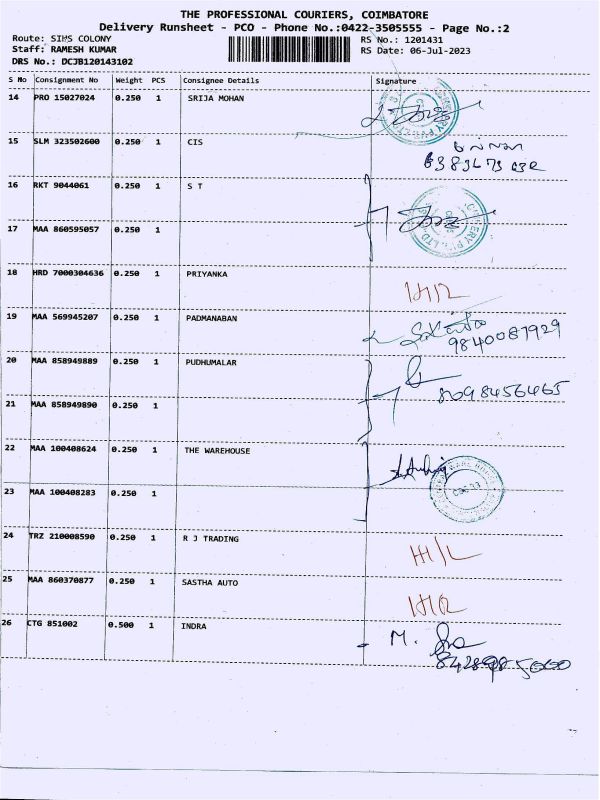 THE PROFESSIONAL COURIERS, COIMBATORE
Delivery Runsheet - PCO - Phone No.:0422-3505555 - Page No.:2
Route: SIHS COLONY RS No.: 1201431
Staff: RAMESH KUMAR RS Date: 06-Jul-2023
DRS No.: DCJB120143102
S No Consignment No Weight PCS Consignee Details Signature
14 PRO 15027024 0.250 1 SRIJA MOHAN
15 SLM 323502600 0.250 1 CIS
16 RKT 9044061 0.250 1 S T
17 MAA 860595057 0.250 1
18 HRD 7000304636 0.250 1 PRIYANKA
19 MAA 569945207 0.250 1 PADMANABAN
9840087929
20 MAA 858949889 0.250 1 PUDHUMALAR
8098456465
21 MAA 858949890 0.250 1
22 MAA 100408624 0.250 1 THE WAREHOUSE
23 MAA 100408283 0.250 1
24 TRZ 210008590 0.250 1 R J TRADING
H/L
25 MAA 860370877 0.250 1 SASTHA AUTO
26 CTG 851002 0.500 1 INDRA M.